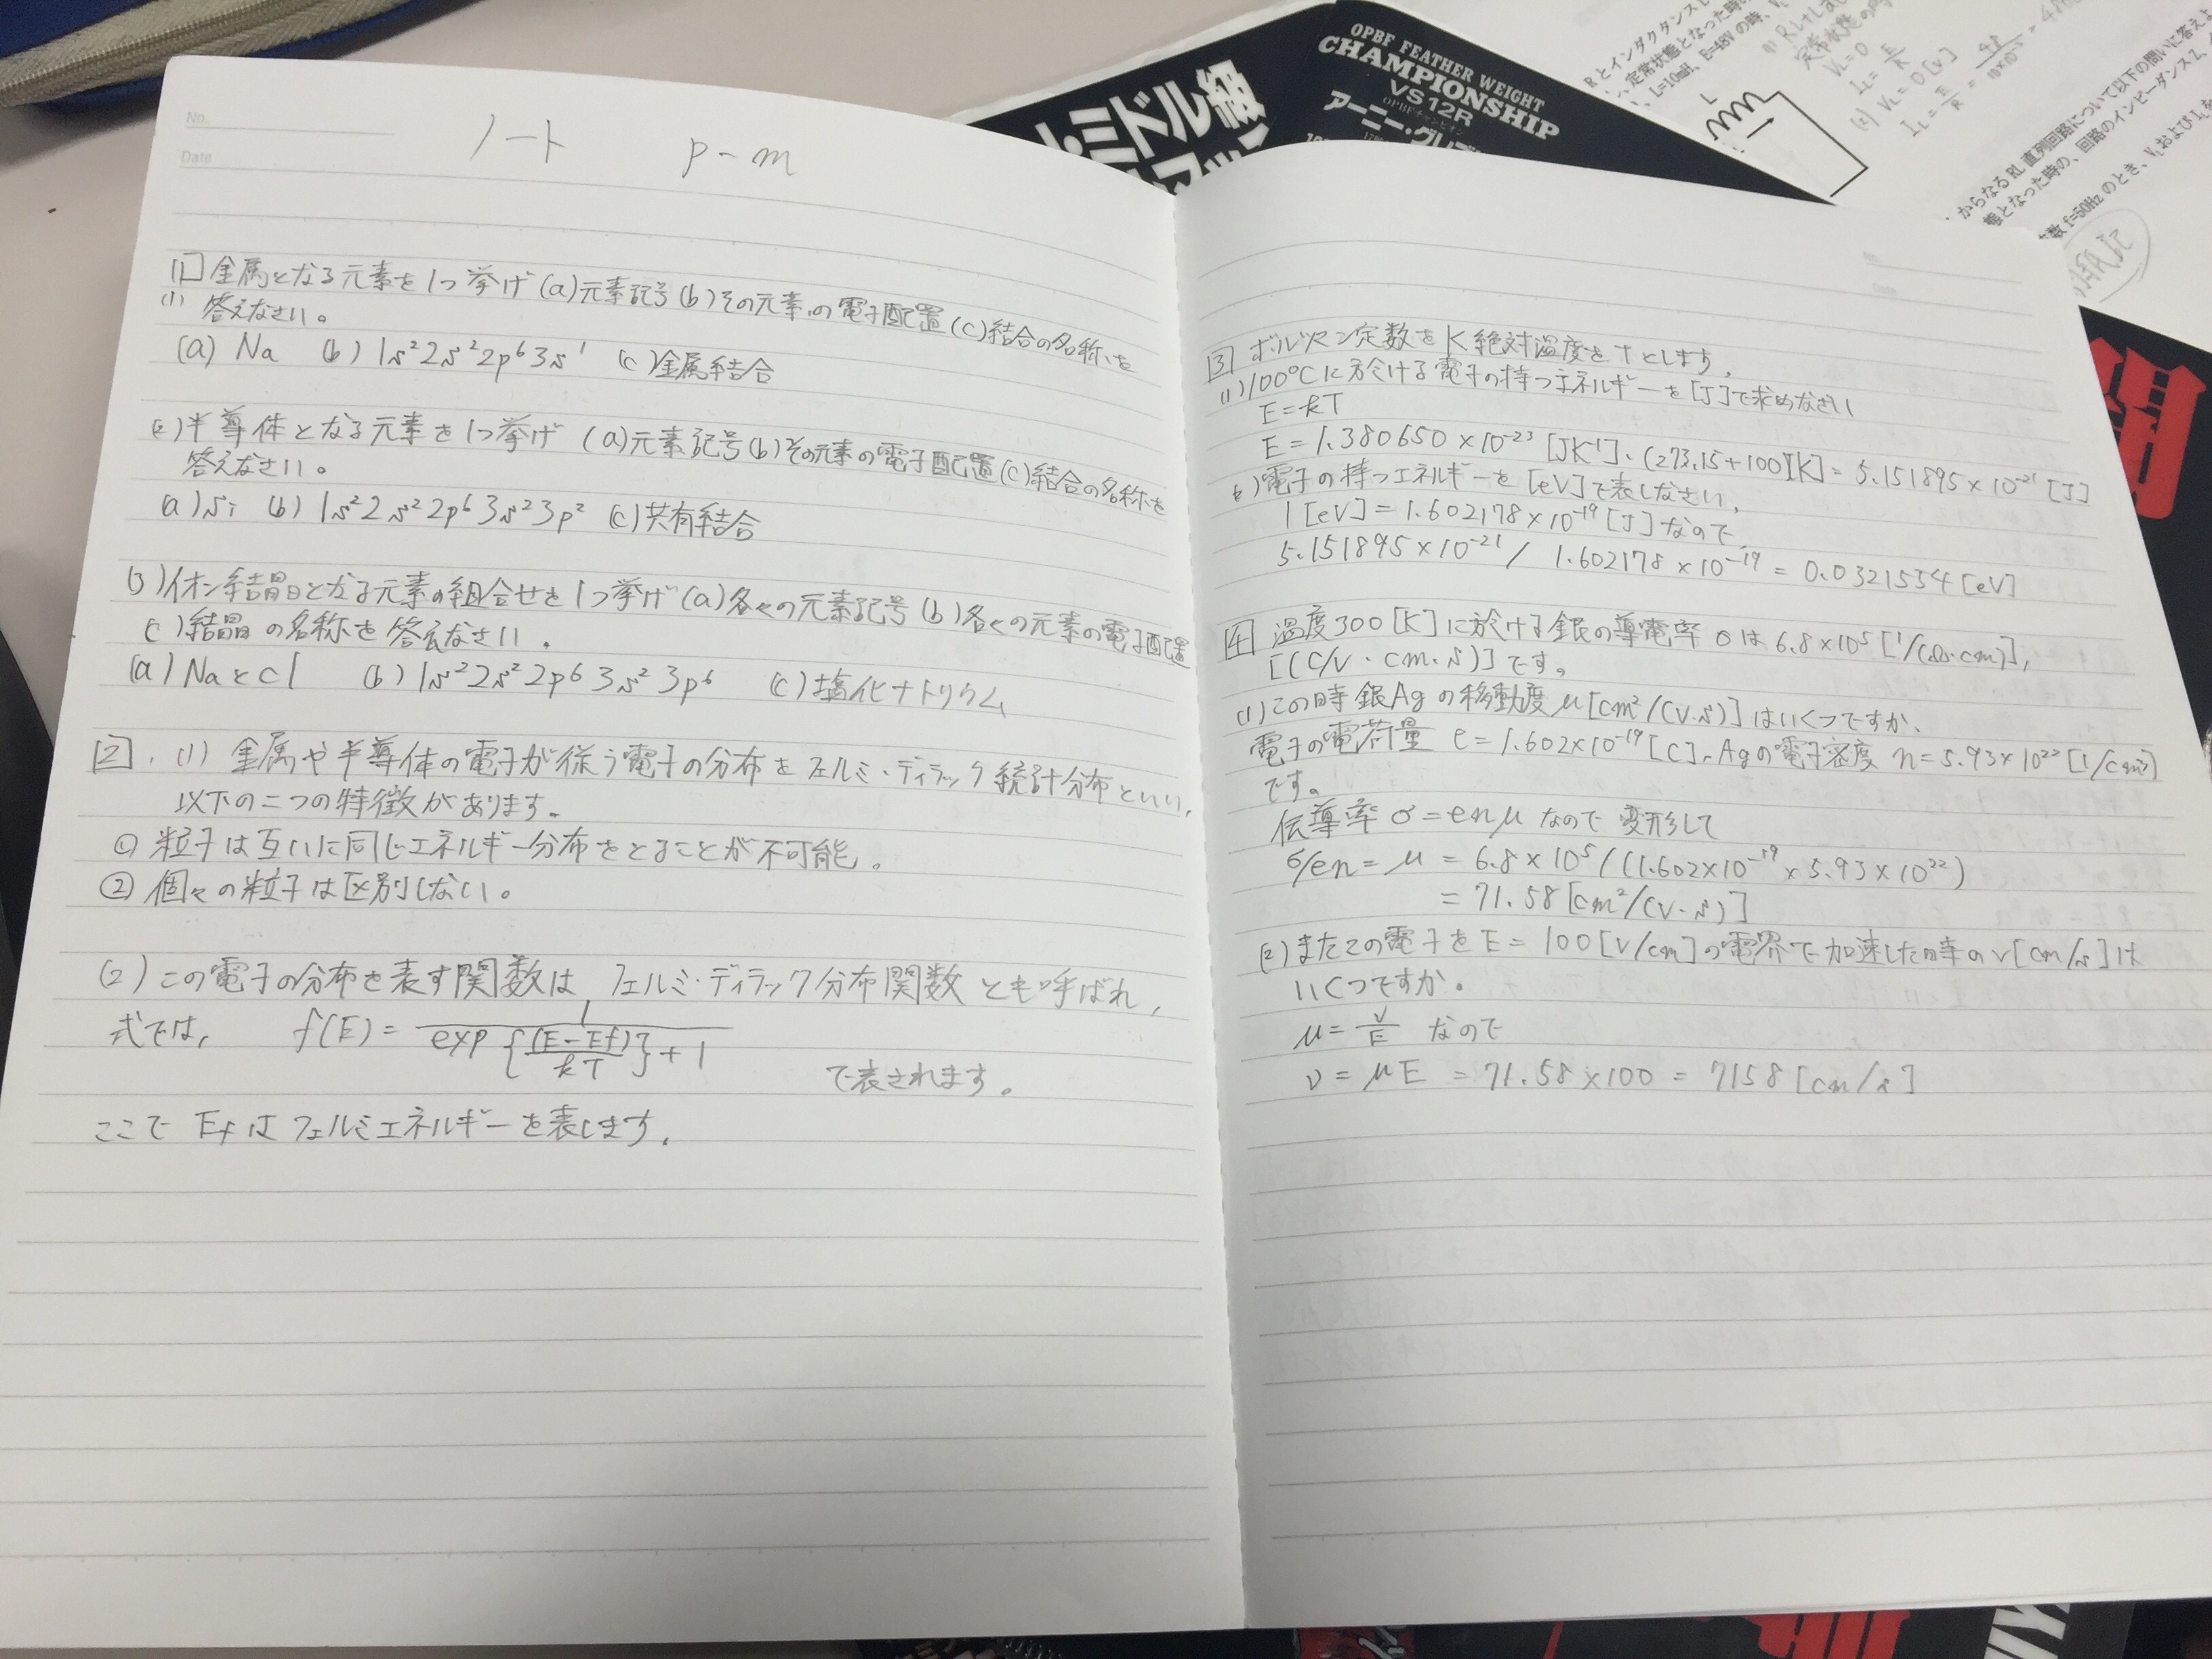 No.
Date
ノート p-m
[1] 金属となる元素を1つ挙げ (a)元素記号 (b)その元素の電子配置 (c)結合の名称を
(1) 答えなさい。
(a) Na (b) 1s²2s²2p⁶3s¹ (c)金属結合
(2)半導体となる元素を1つ挙げ (a)元素記号(b)その元素の電子配置(c)結合の名称を
答えなさい。
(a) Si (b) 1s²2s²2p⁶3s²3p² (c)共有結合
(3)イオン結晶となる元素の組合せを1つ挙げ (a)各々の元素記号 (b)各々の元素の電子配置
(c)結晶の名称を答えなさい.
(a) NaとCl (b) 1s²2s²2p⁶3s²3p⁶ (c)塩化ナトリウム
[2]. (1) 金属や半導体の電子が従う電子の分布をフェルミ・ディラック統計分布といい,
以下の二つの特徴があります。
① 粒子は互いに同じエネルギー分布をとることが不可能。
② 個々の粒子は区別しない。
(2) この電子の分布を表す関数は フェルミ・ディラック分布関数 とも呼ばれ,
式では, f(E) = 1/(exp{(E-Ef)/kT}+1) で表されます。
ここで Efは フェルミエネルギーを表します.
[3] ボルツマン定数をK絶対温度をTとします,
(1)100℃に於ける電子の持つエネルギーを[J]で求めなさい
E=kT
E=1.380650×10⁻²³[JK⁻¹]・(273.15+100)[K]=5.151895×10⁻²¹[J]
(2)電子の持つエネルギーを[eV]で表しなさい,
1[eV]=1.602178×10⁻¹⁹[J]なので
5.151895×10⁻²¹/ 1.602178×10⁻¹⁹=0.0321554[eV]
[4] 温度300[K]に於ける銀の導電率σは6.8×10⁵[1/(Ω・cm)],
[(C/V・cm・s)]です。
(1)この時銀Agの移動度μ[cm²/(V・s)]はいくつですか,
電子の電荷量 e=1.602×10⁻¹⁹[C], Agの電子密度 n=5.93×10²²[1/cm³]
です。
伝導率σ=enμなので 変形して
σ/en=μ=6.8×10⁵/(1.602×10⁻¹⁹×5.93×10²²)
=71.58[cm²/(V・s)]
(2)またこの電子をE=100[V/cm]の電界で加速した時のv[cm/s]は
いくつですか.
μ=v/E なので
v=μE=71.58×100=7158[cm/s]
OPBF FEATHER WEIGHT
CHAMPIONSHIP
VS 12R
ト・ミドル級
RとインダクタンスL
L=10mH、E=48Vの時、
VL=0
からなるRL直列回路について以下の問いに答えよ
態となった時の、回路のインピーダンスZ、
数f=50Hzのとき、VLおよびILを